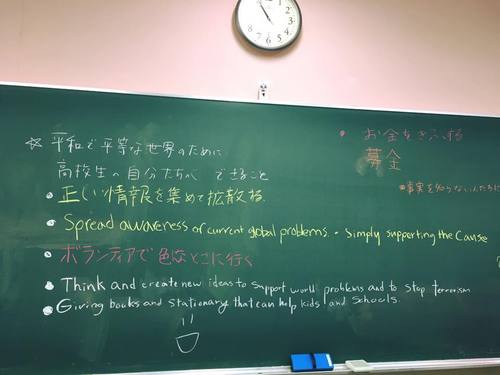 ☆ 平和で平等な世界のために
高校生の自分たちが できること
• 正しい情報を集めて拡散する.
• Spread awareness of current global problems. • Simply supporting the Cause
• ボランティアで色なとこに行く
• Think and create new ideas to support world problems and to stop terrorism
• Giving books and stationary that can help kids and schools.
• お金をきふする
募金
•事実を知らない人たちに